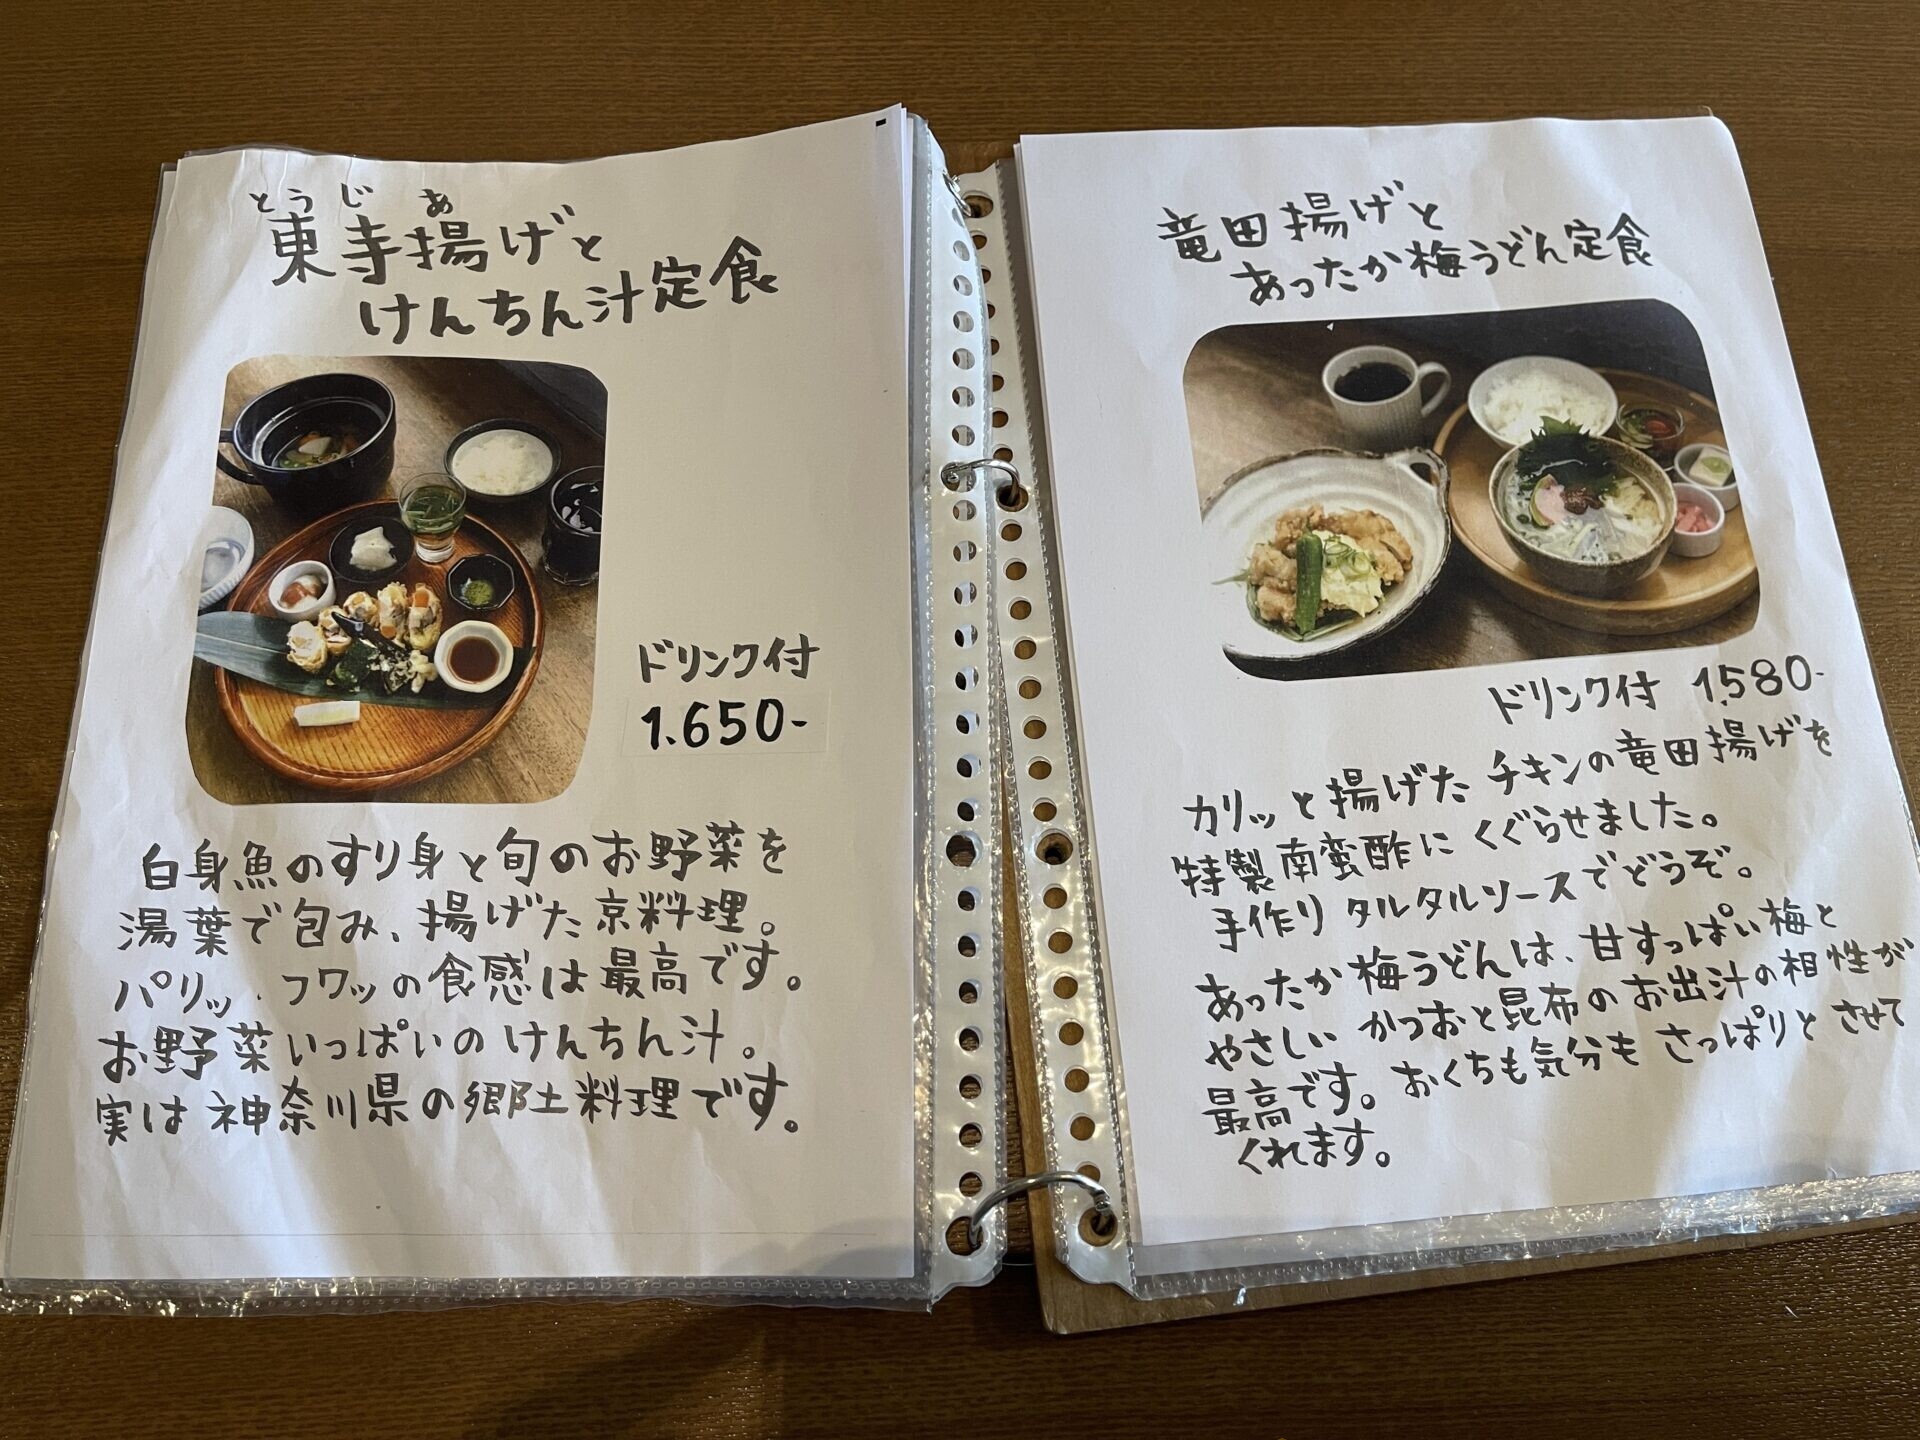 とうじ あ
東寺揚げと
けんちん汁定食
ドリンク付
1.650-
白身魚のすり身と旬のお野菜を
湯葉で包み、揚げた京料理。
パリッ、フワッの食感は最高です。
お野菜いっぱいのけんちん汁。
実は神奈川県の郷土料理です。
竜田揚げと
あったか梅うどん定食
ドリンク付 1,580-
カリッと揚げたチキンの竜田揚げを
特製南蛮酢にくぐらせました。
手作りタルタルソースでどうぞ。
あったか梅うどんは、甘すっぱい梅と
やさしいかつおと昆布のお出汁の相性が
最高です。おくちも気分もさっぱりとさせて
くれます。